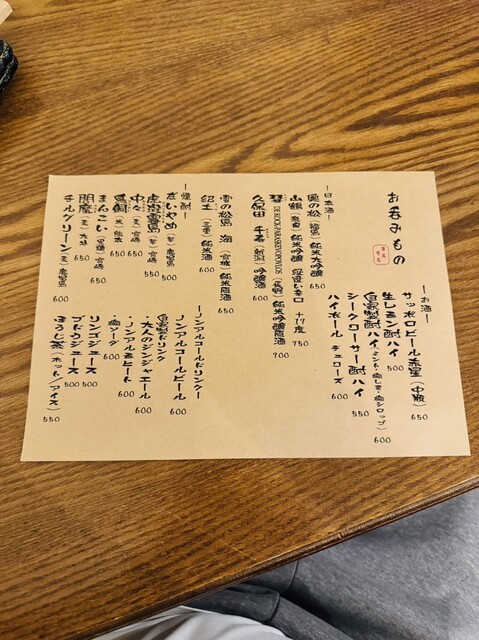 お呑みもの
ーお酒ー
サッポロビール赤星（中瓶） 650
生レモン酎ハイ 500
自家製酎ハイ（ミント・梅しそ・梅シロップ） 600
シークワーサー酎ハイ 550
ハイボール デュワーズ 600
ー日本酒ー
奥の松（福島）純米大吟醸 650
純米吟醸 極寒い辛口 +17度 750
純米吟醸原酒 700
久保田 千寿（新潟）吟醸酒 600
雪の松島 海（宮城）純米原酒 650
純米酒 600
ー焼酎ー
だいやめ（芋）鹿児島 500
虎斑霧島（芋）宮崎 550
中々（麦）宮崎 550
鳥飼（米）熊本 650
まんこい（黒糖） 550
閻魔（麦）大分 550
チルグリーン（麦）鹿児島 600
ーノンアルコールドリンクー
ノンアルコールビール 600
自家製ドリンク
・大人のジンジャエール 600
・ノンアルモヒート 600
・梅ソーダ 600
リンゴジュース 500
ブドウジュース 500
ほうじ茶（ホット/アイス） 550